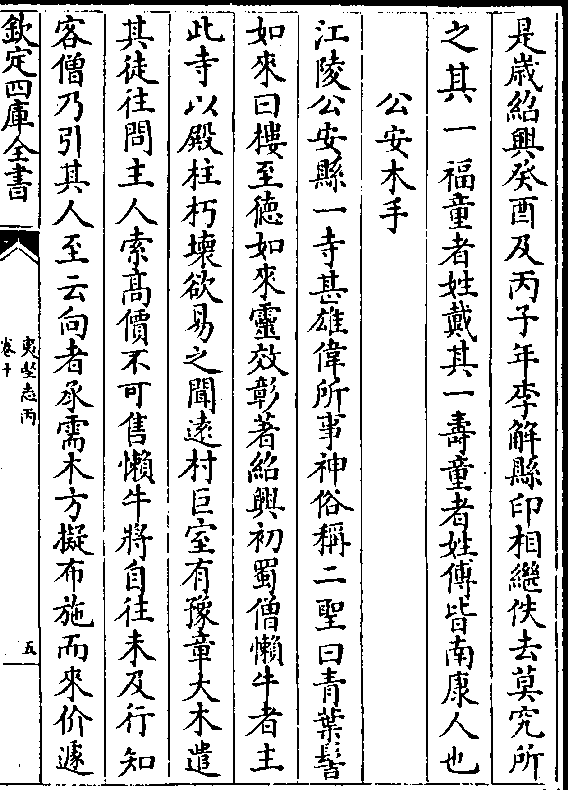 是歲紹興癸酉及丙子年李解縣印相繼佚去莫究所
之其一福童者姓戴其一壽童者姓傅皆南康人也
公安木手
江陵公安縣一寺甚雄偉所事神俗稱二聖曰青葉髻
如來曰樓至德如來靈效彰著紹興初蜀僧懶牛者主
此寺以殿柱朽壞欲易之聞逺村巨室有豫章大木遣
其徒往問主人索髙價不可售懶牛將自往未及行知
客僧乃引其人至云向者承需木方擬布施而來价遽
欽定四庫全書
夷堅志丙
卷十
五